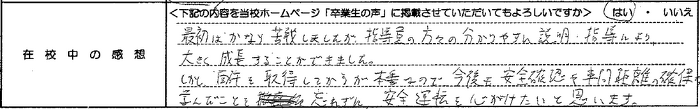 <下記の内容を当校ホームページ「卒業生の声」に掲載させていただいてもよろしいですか> はい ・ いいえ
在校中の感想
最初はかなり苦戦しましたが、指導員の方々の分かりやすい説明・指導により、
大きく成長することができました。
しかし、免許を取得してからが本番なので、今後も安全確認や車間距離の確保
学んだことを忘れずに、安全運転を心がけたいと思います。